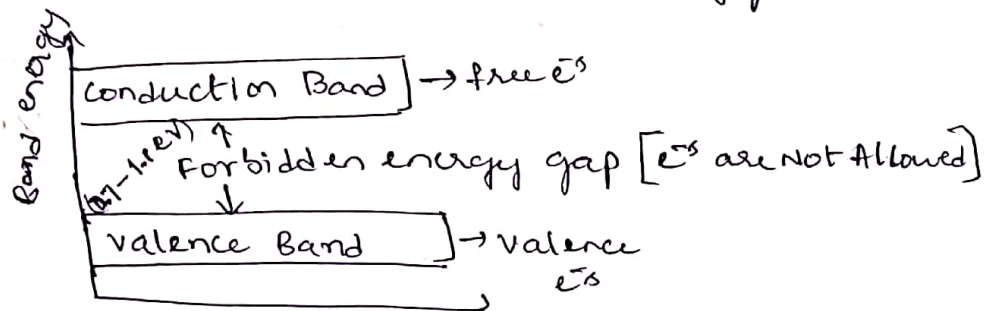 Band energy
Conduction Band → free e⁻s
(0.7-1.1 eV)
Forbidden energy gap [e⁻s are Not Allowed]
Valence Band → valence
e⁻s